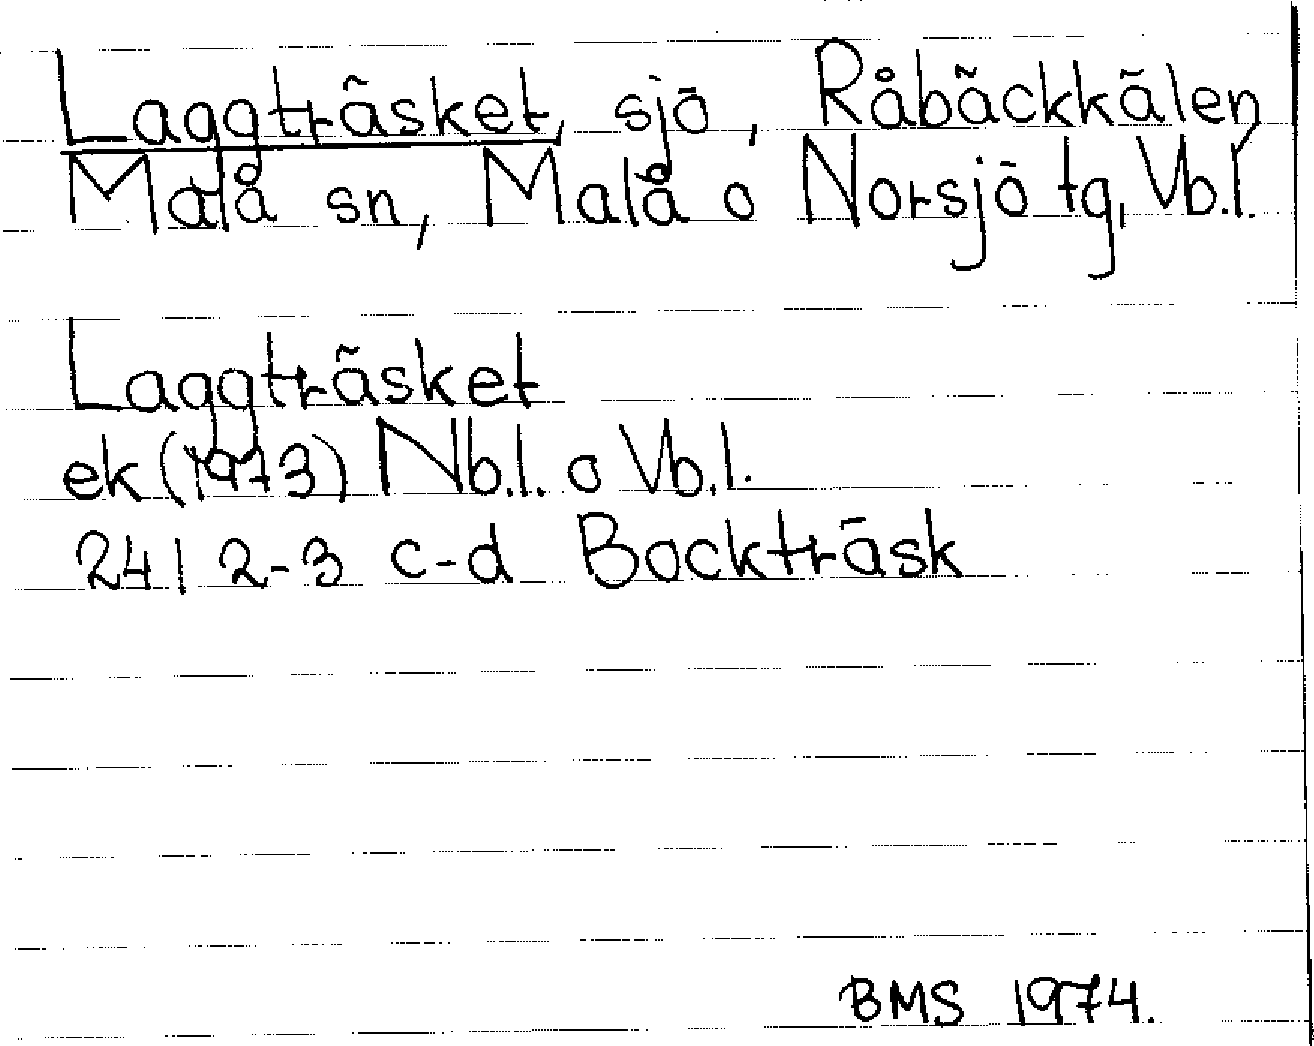 Laggträsket, sjö, Råbäckkälen
Malå sn, Malå o Norsjö tg, Vb.l.
Laggträsket
ek (1973) Nb.l. o Vb.l.
24 I 2-3 c-d Bockträsk
BMS 1974.